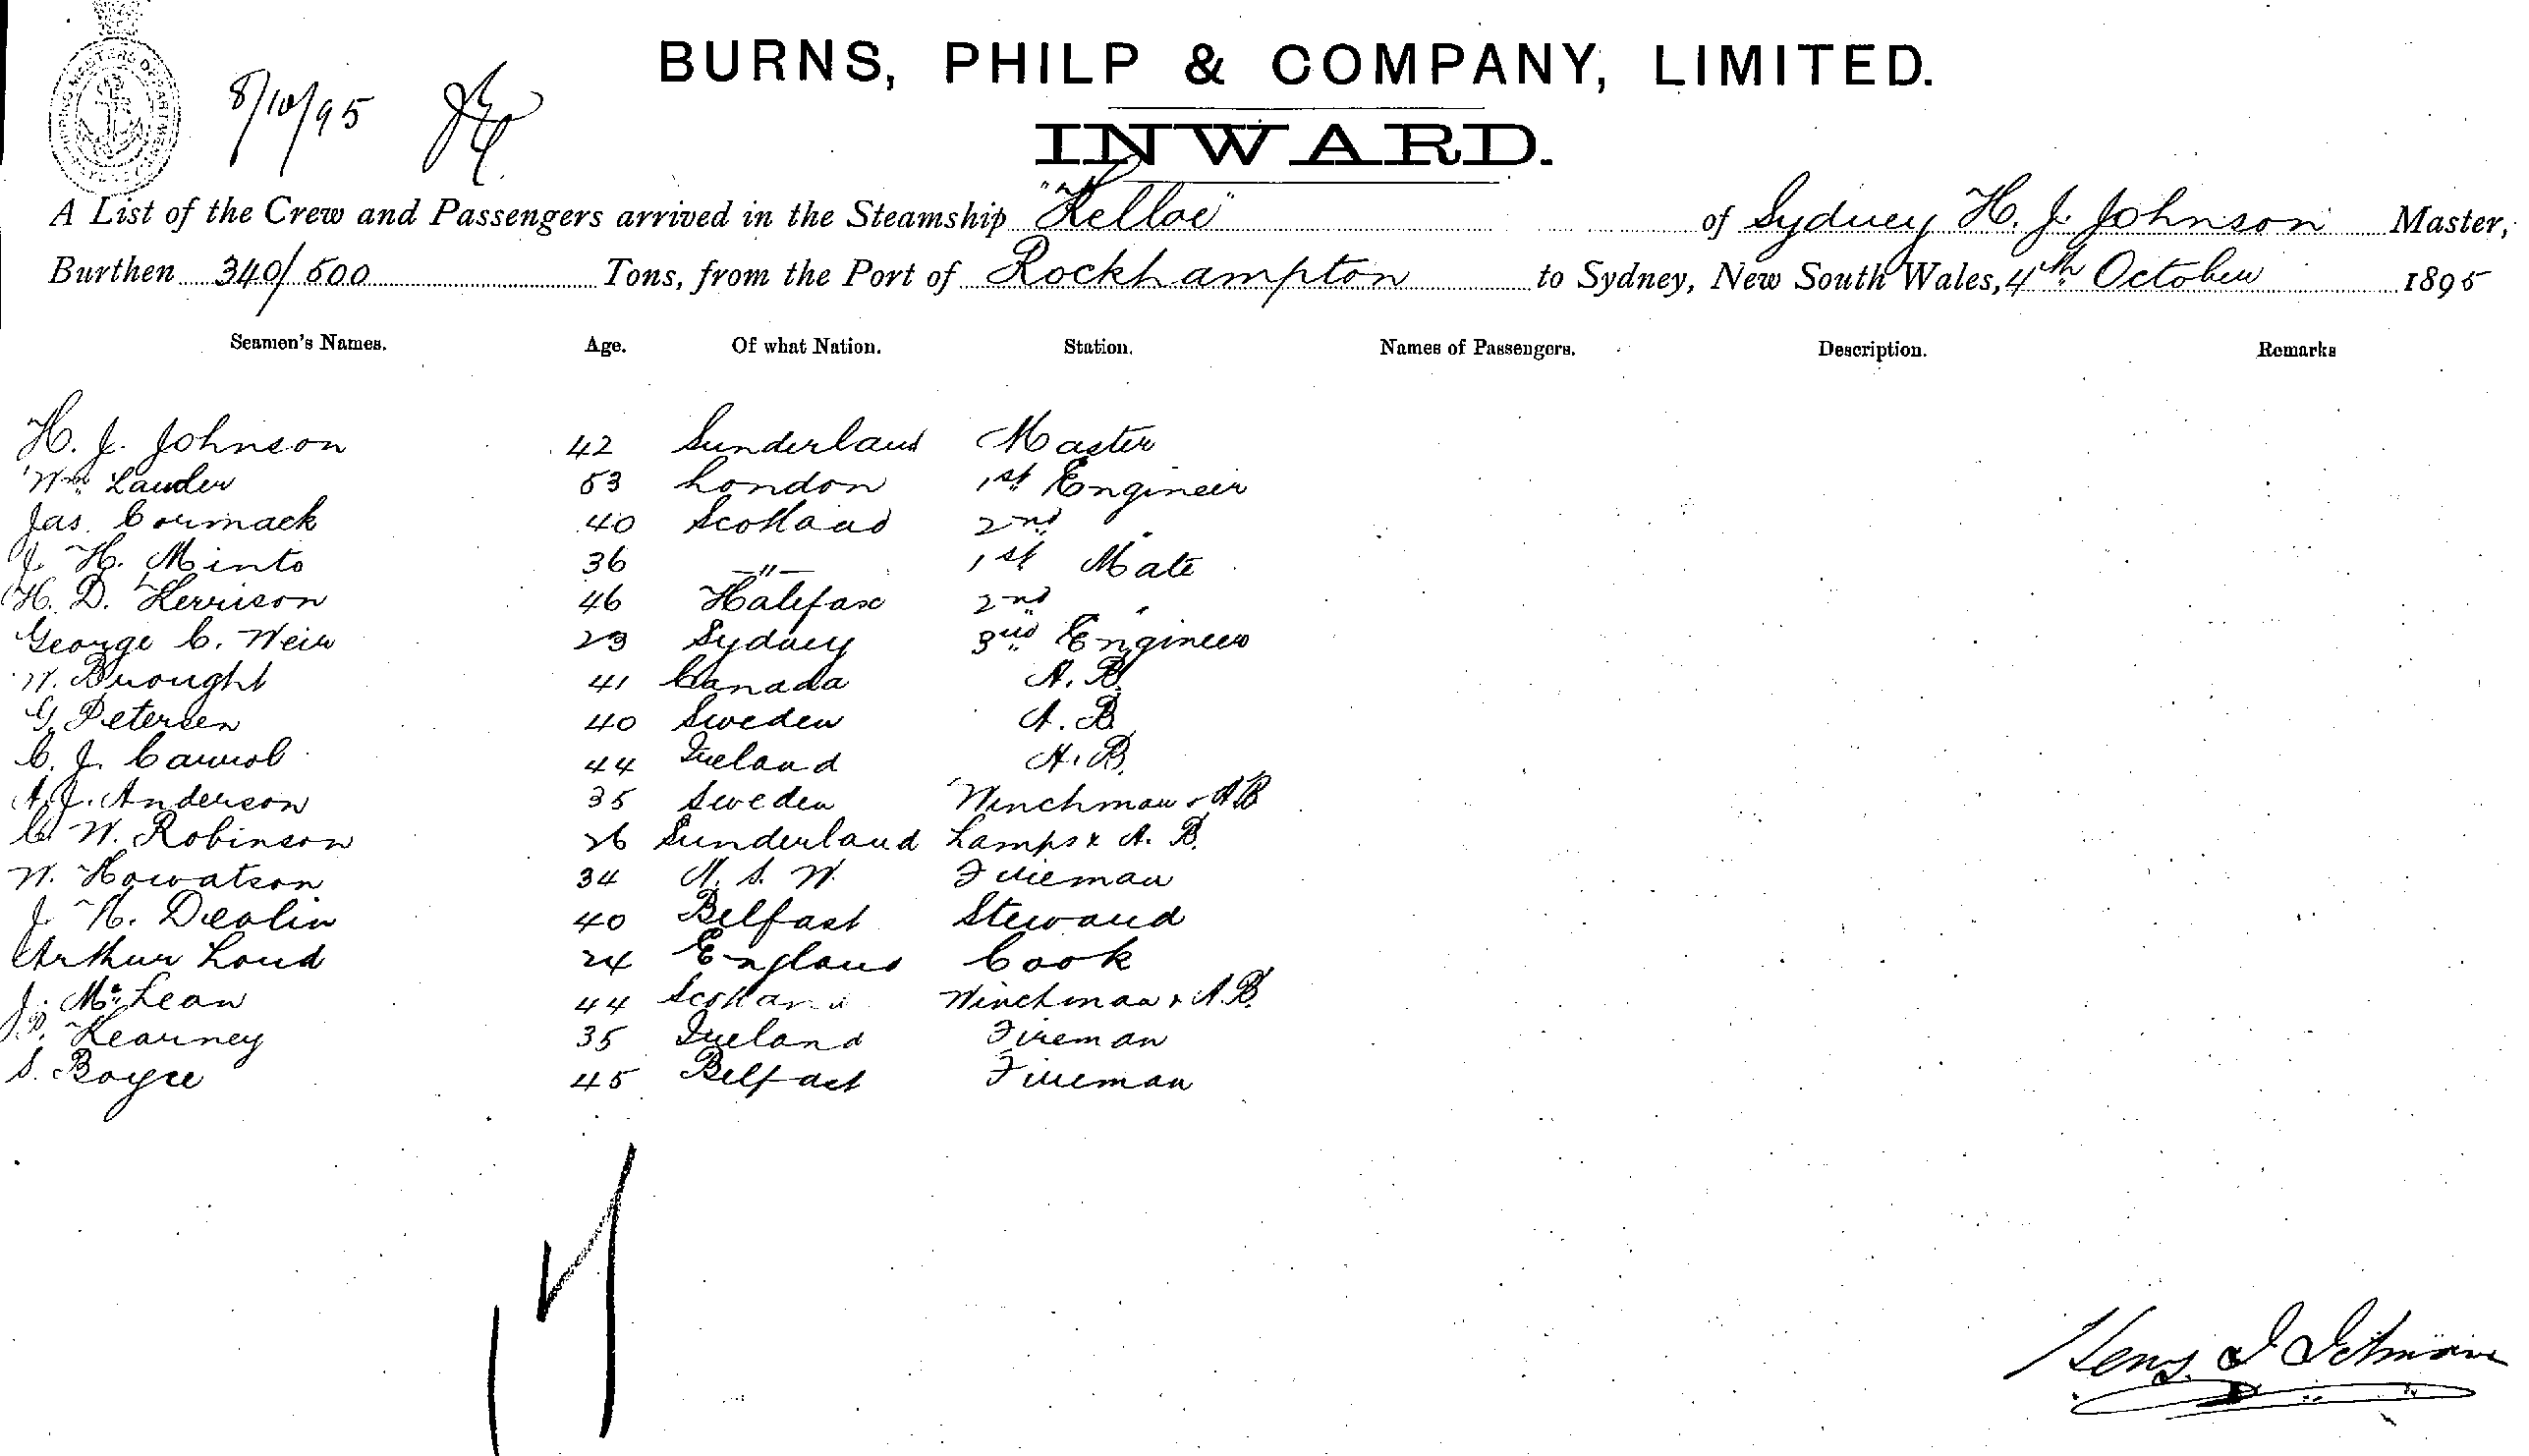 8/10/95
BURNS, PHILP & COMPANY, LIMITED.
INWARD.
A List of the Crew and Passengers arrived in the Steamship "Kelloe" of Sydney H. J. Johnson Master,
Burthen 340/500 Tons, from the Port of Rockhampton to Sydney, New South Wales, 4th October 1895
Seamen's Names. Age. Of what Nation. Station. Names of Passengers. Description. Remarks
H. J. Johnson 42 Sunderland Master
Wm Lauder 53 London 1st Engineer
Jas. Cormack 40 Scotland 2nd "
J. H. Minto 36 —"— 1st Mate
H. D. Kerrison 46 Halifax 2nd "
George C. Weir 23 Sydney 3rd Engineer
W. Brought 41 Canada A. B.
G. Petersen 40 Sweden A. B.
C. J. Carrol 44 Ireland A. B.
A. J. Anderson 35 Sweden Winchman & AB
C. W. Robinson 26 Sunderland Lamps & A. B.
W. Howatson 34 N. S. W. Fireman
J. Devlin 40 Belfast Steward
Arthur Lond 24 England Cook
J. McLean 44 Scotland Winchman & A.B.
P. Kearney 35 Ireland Fireman
S. Boyce 45 Belfast Fireman
17
Henry J Johnson